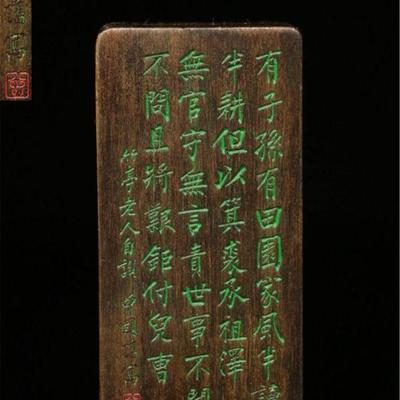 有子孫有田園家風半讀
半耕但以箕裘承祖澤
無官守無言責世事不聞
不問且將艱鉅付兒曹
竹亭老人自譔 曾國藩寫
藩寫